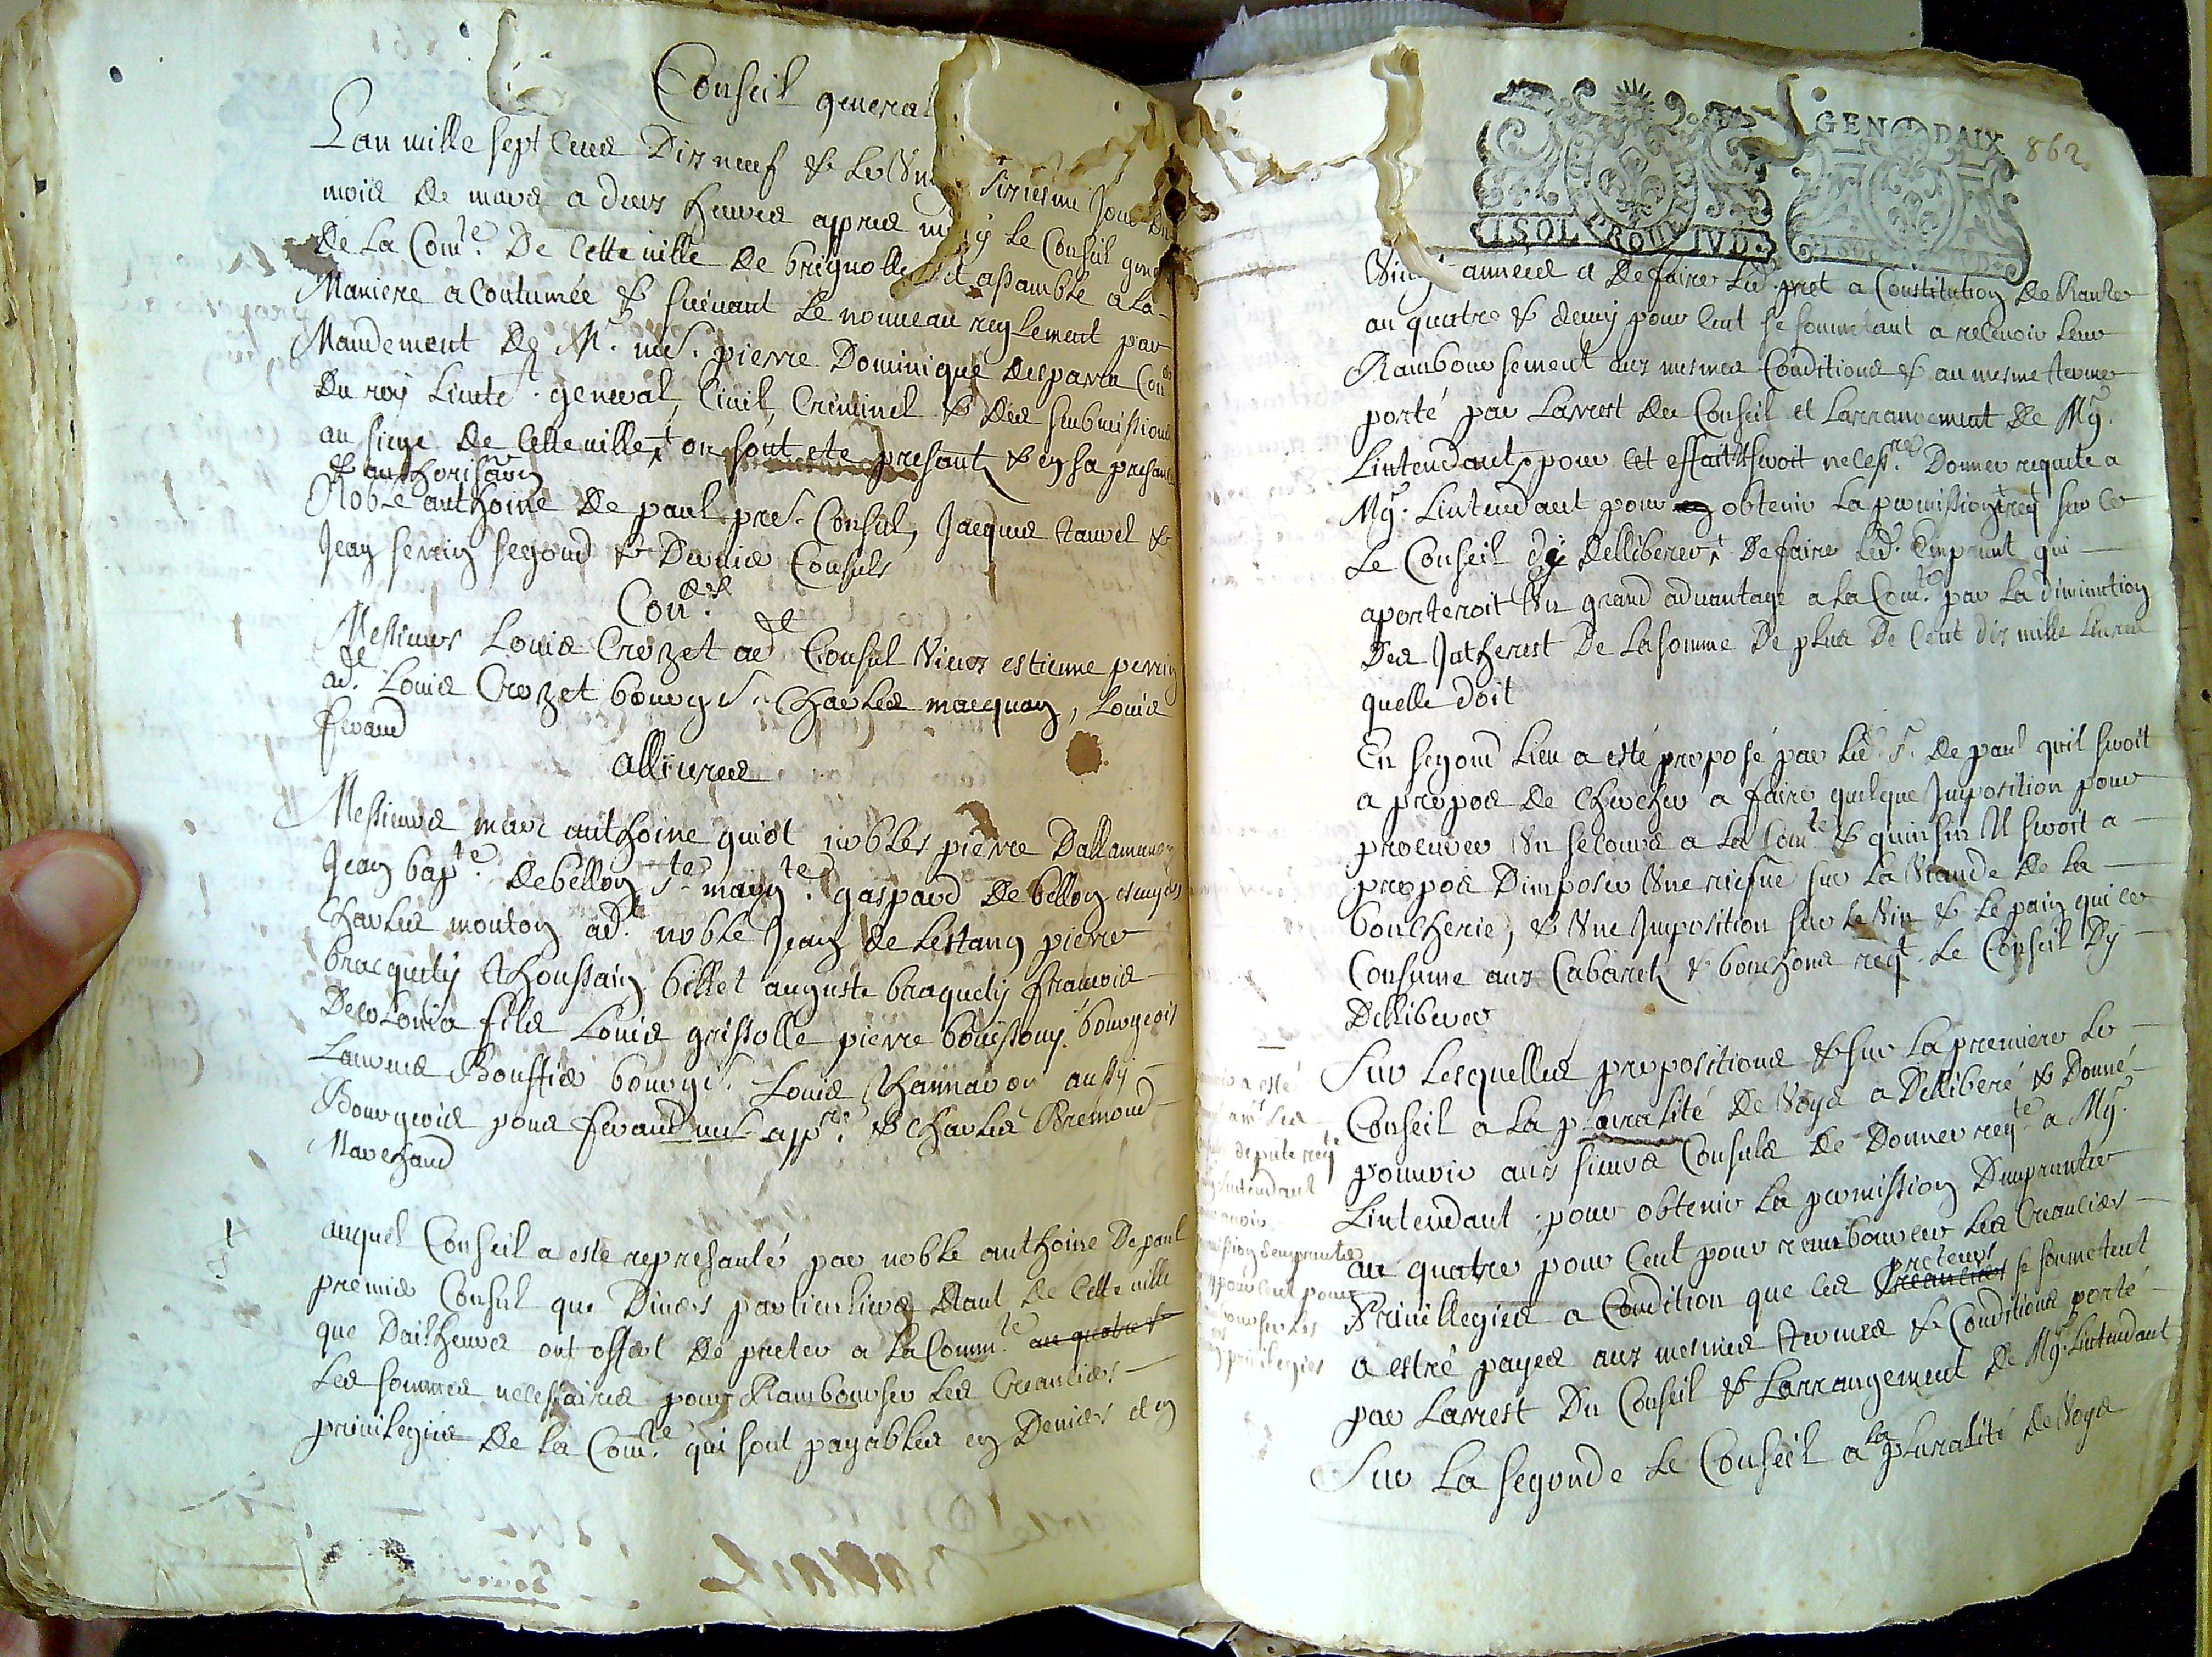 Conseil general
Lan mille sept cens Dix neuf & Le sixiesme Jour Du
mois De mars a deux heures appres Le Conseil gen
De La Com.te De Cette ville De brignolle assamble a La
Maniere a Coutumée & suivant Le nouveau reglement par
Mandement De M.r me. pierre Dominique Desparra Con.er
Du roy Lieute. general, Civil, Criminel & Des submissions
au siege De Cette ville, ou sont este presant & en sa presance
& authorisaon
Noble anthoine De paul pre. Consul, Jacques tauvel &
Jean perrin segond & Dernier Consuls
Con.ers
Messieurs Louis Crozet ad. Consul Vieux estienne perrin
ad. Louis Crozet bourg. Charles macquan, Louis
feraud
allivres
Messieurs marc anthoine guiot nobles pierre Dallamanon
Jean bap.te Debellon S.te marg.te gaspard De bellon escuyer
Charles mouton ad. noble Jean De Lestang pierre
bracquety thoussain billet auguste braquety francois
Decolonia fils Louis grisolle pierre bouissony bourgeois
Laurens Roustie bourg. Louis aussy
Bourgeois pons feraud me. app.re & Charles Bremond
Marchand
auquel Conseil a este represanté par noble anthoine De paul
premier Consul que Divers particuliers tant De Cette ville
que Dailheurs ont offert De preter a La Comm.te au quatre &
Les sommes necessaires pour Rambourser Les Creanciers
privilegiés De la Com.te qui sont payables en Deniers et en
GEN DAIX
862
I SOL TROU IVD
Vingt années et De faire Led. pret a Constitution De Rante
au quatre & demy pour Cent se soumetant a recevoir Leur
Rambour sement aux mesmes Conditions & au mesme terme
porté par Larrest du Conseil et Larrancement de Mg.r
Lintendant, pour Cet effait Il seroit necess.re Donner requete a
Mg.r Lintendant pour en obtenir La permission req.t sur ce
Le Conseil dy Delliberer De faire Led. Emprunt qui
aporteroit Un grand advantage a la Com.te par La diminution
Des Jntherest De La somme De plus De Cent dix mille Livres
quelle doit
En segond Lieu a esté proposé par Led. S. De paul quil seroit
a propos De chercher a faire quelque Jmposition pour
procurer Un secours a La Com.te & quinsin Il seroit a
propos Dimposer Une riesve sur La Viande De La
boucherie, & Une Jmposition sur Le Vin & Le pain qui ce
Consume aux Cabarets & bouchons req.t Le Conseil Dy
Delliberer
Sur Lesquelles propositions & sur La premiere Le
Conseil a La pluralité De Voys a Delliberé & Donné
pouvoir aux sieurs Consuls De Donner req.te a Mg.r
Lintendant pour obtenir La permission Demprunter
au quatre pour Cent pour rembourcer Les Creanciers
Privillegies a Condition que Les Creanciers preteurs se soumetent
a estre payes aux mesmes termes & Conditions porté
par Larrest Du Conseil & Larrangement De Mg.r Lintendant
Sur La segonde Le Conseil a la pluralité De Voys
a esté
depute req.t
Lintendant
demprunter
pour cent pour
privilegies